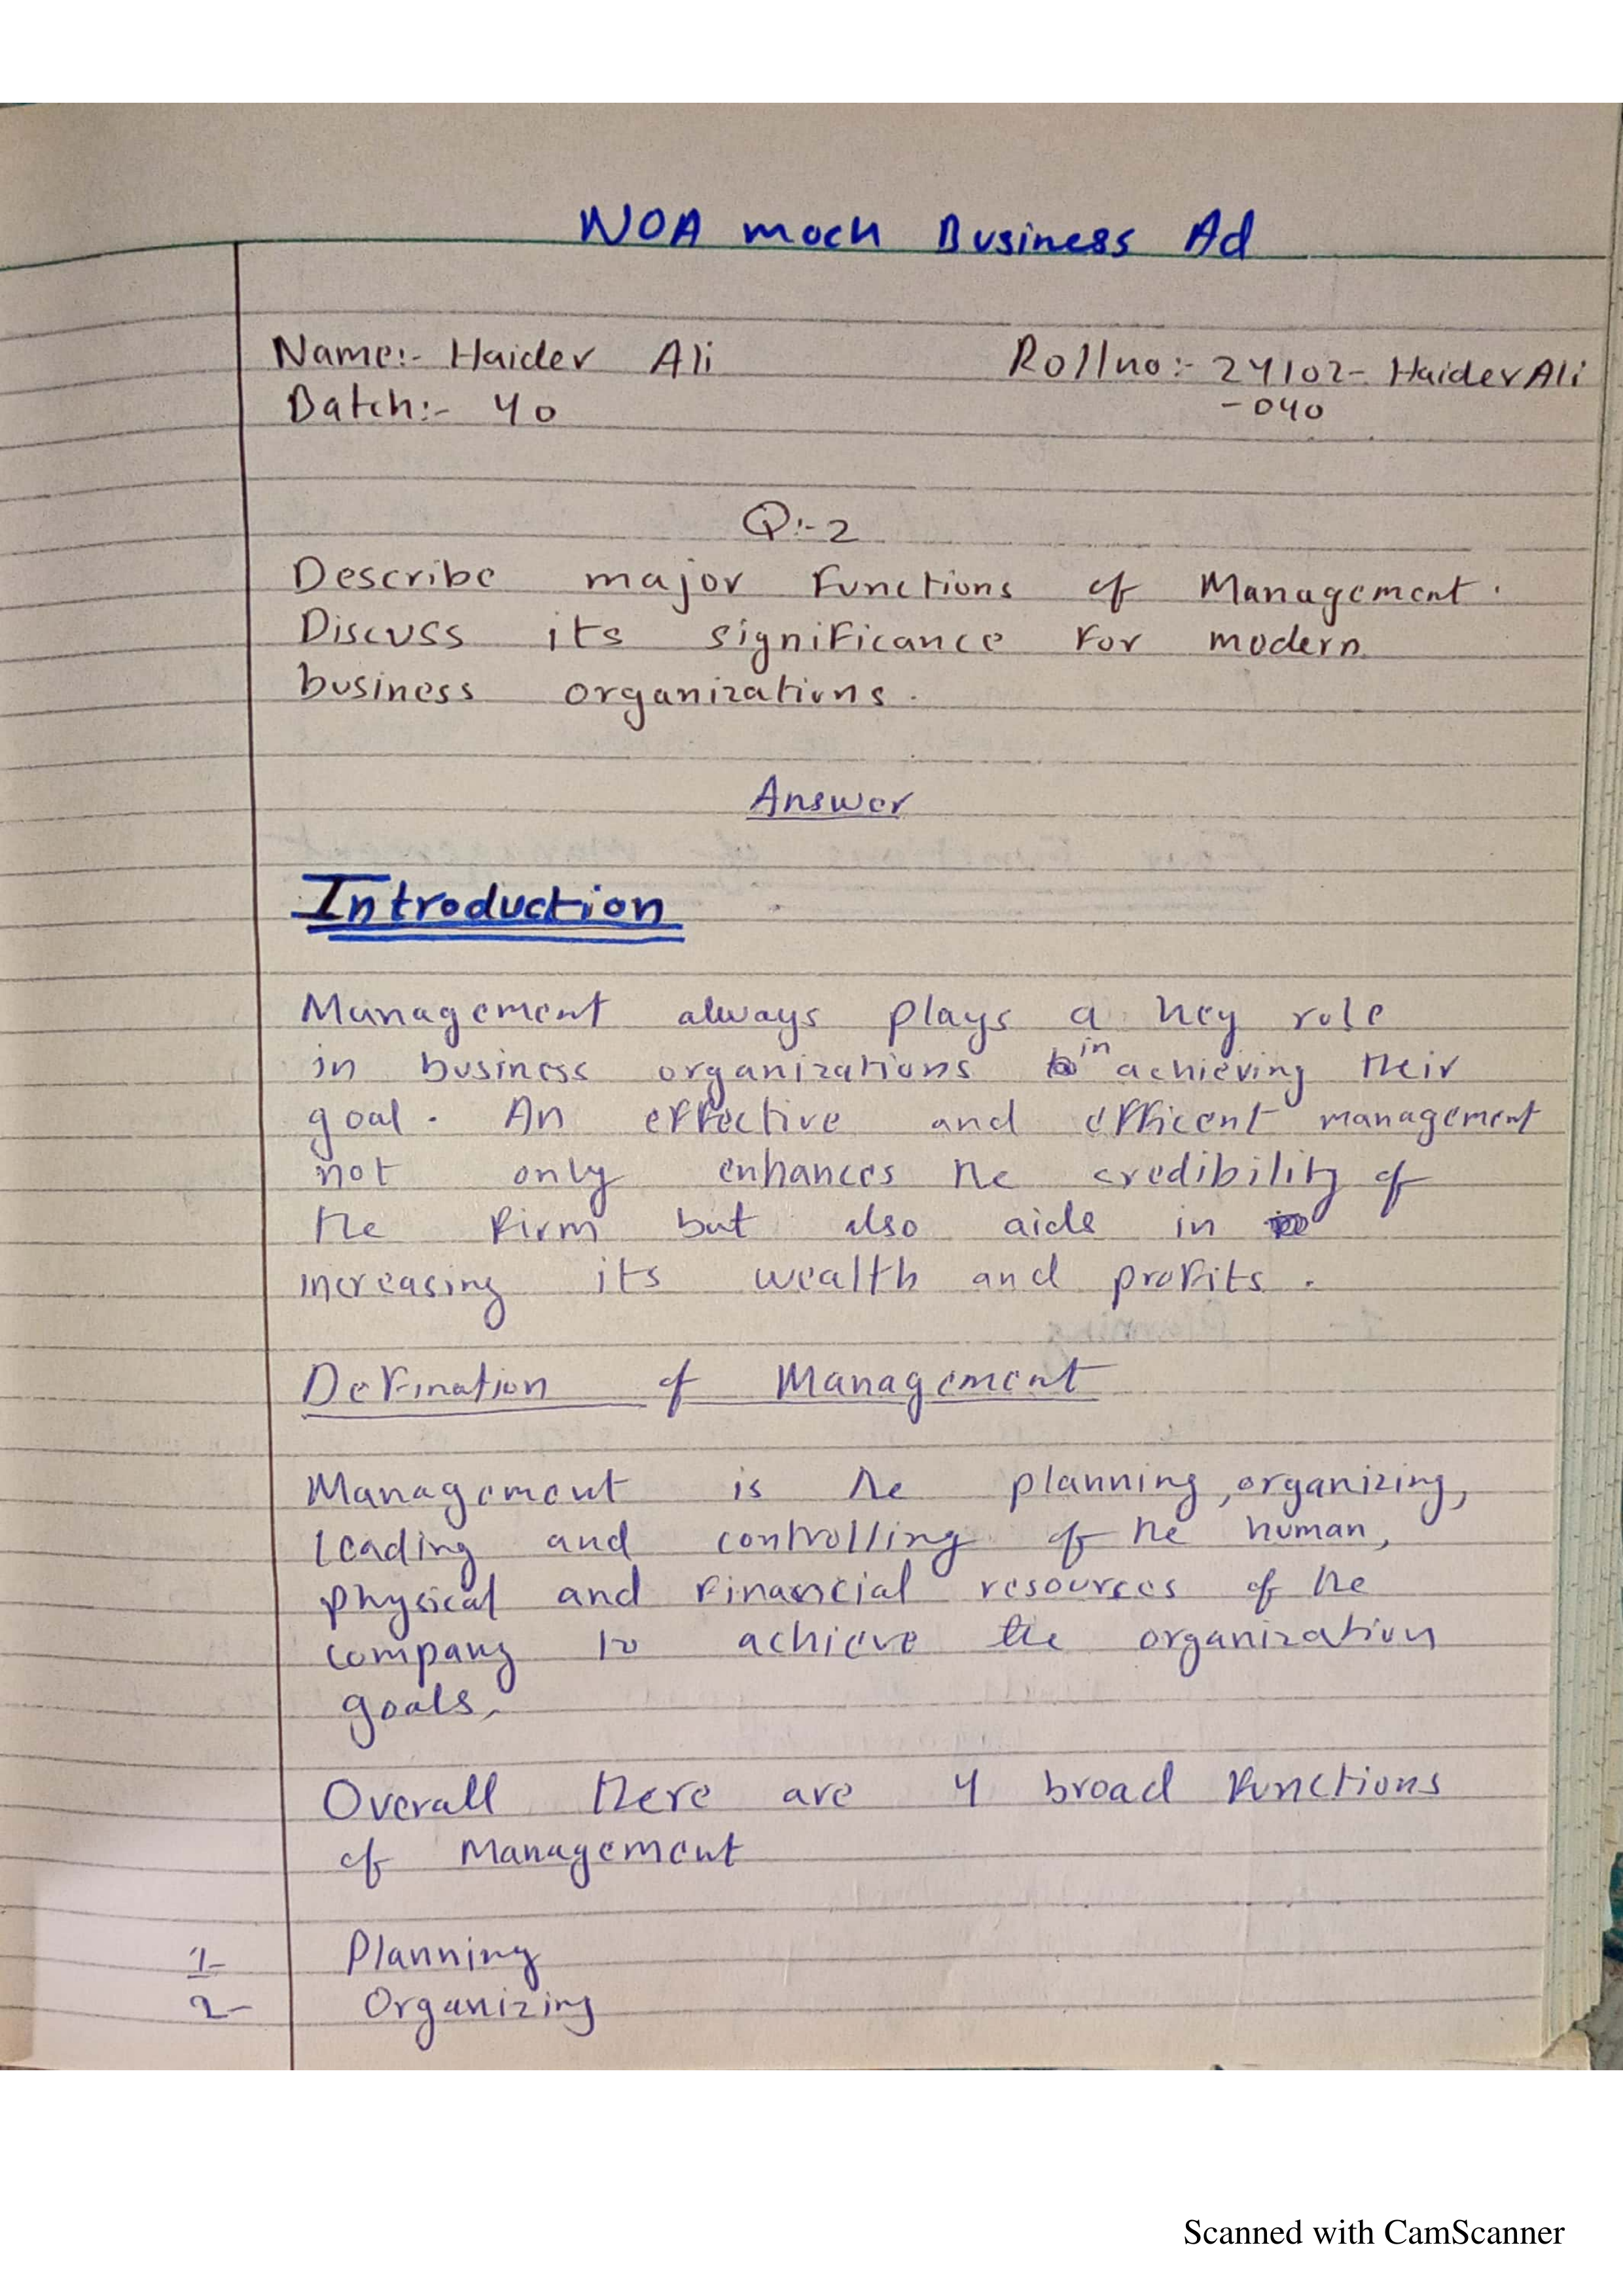 WOA mock Business Ad
Name:- Haider Ali Rollno:- 24102- HaiderAli
Batch:- 40 -040
Q:-2
Describe major Functions of Management.
Discuss its significance For modern
business organizations.
Answer
Introduction
Management always plays a key role
in business organizations in achieving their
goal. An effective and efficent management
not only enhances the credibility of
the Firm but also aids in
increasing its wealth and profits.
Defination of Management
Management is the planning, organizing,
leading and controlling of the human,
physical and Financial resources of the
company to achieve the organization
goals.
Overall there are 4 broad Functions
of Management
1- Planning
2- Organizing
Scanned with CamScanner